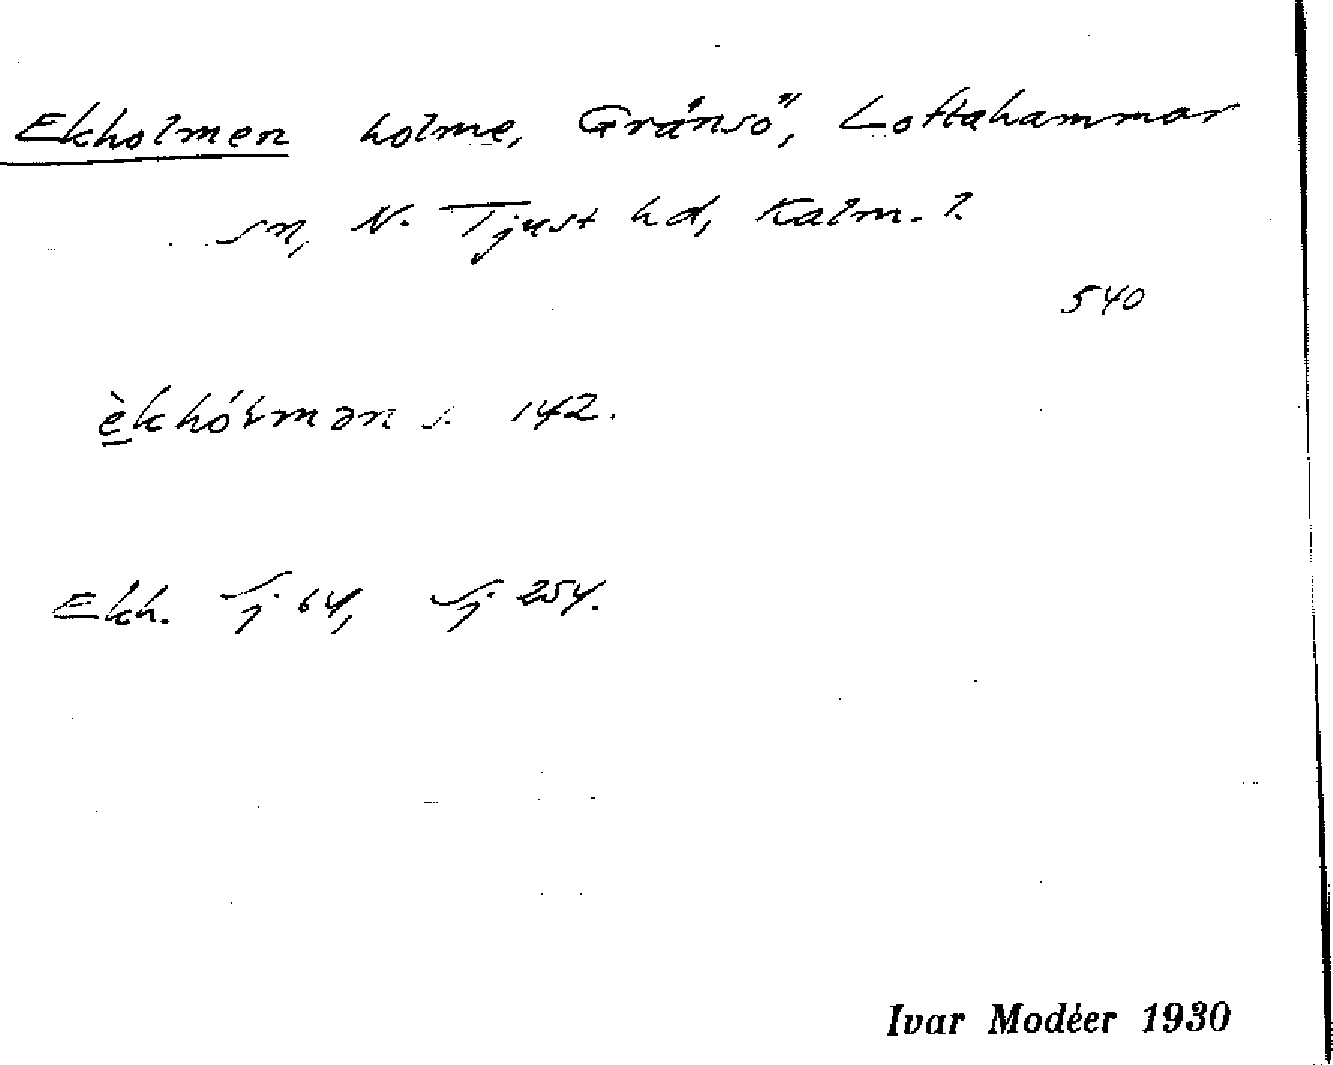 Ekholmen holme, Gränsö, Loftahammar
sn, N. Tjust hd, Kalm. l.
540
èkhóɫmən s. 142.
Ekh. Sj 64, Sj 254.
Ivar Modéer 1930